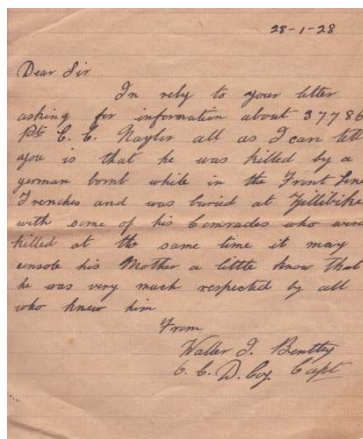 28-1-28
Dear Sir
In rely to your letter
asking for information about 37786
Pte C. E. Naylor all as I can tell
you is that he was killed by a
german bomb while in the Front Line
Trenches and was buried at Zillebike
with some of his Comrades who were
killed at the same time it may
console his Mother a little know that
he was very much respected by all
who knew him
From
Walter J. Bentley
O. C. D. Coy. Capt